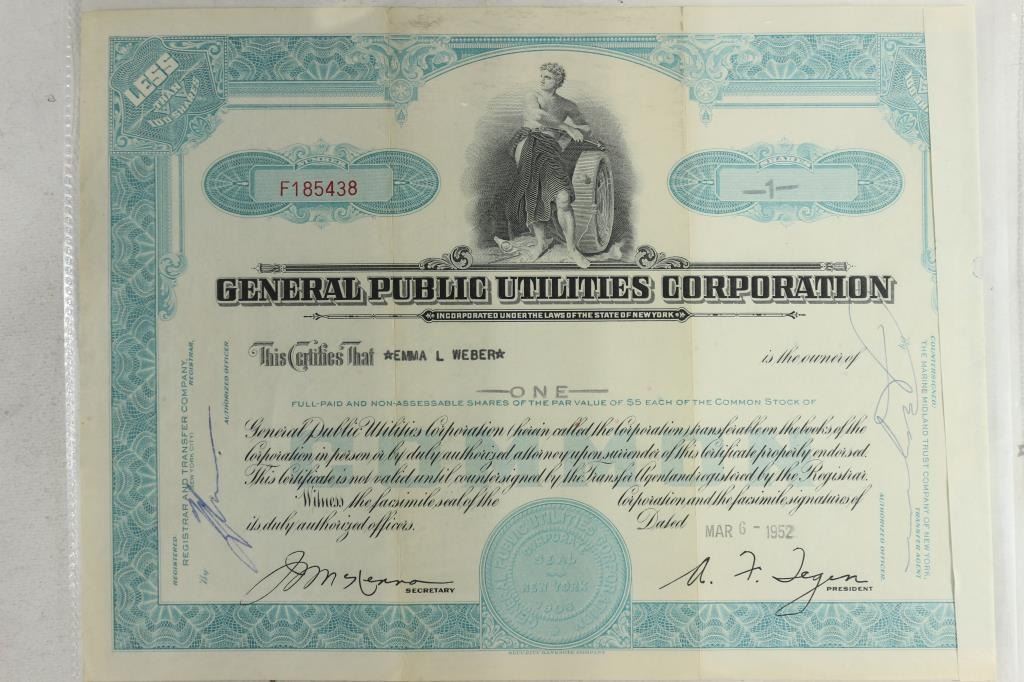 LESS
THAN
100 SHARES
NUMBER
F185438
SHARES
-1-
GENERAL PUBLIC UTILITIES CORPORATION
INCORPORATED UNDER THE LAWS OF THE STATE OF NEW YORK
This Certifies That ★EMMA L WEBER★ is the owner of
—ONE—
FULL-PAID AND NON-ASSESSABLE SHARES OF THE PAR VALUE OF $5 EACH OF THE COMMON STOCK OF
General Public Utilities Corporation (herein called the Corporation) transferable on the books of the
Corporation in person or by duly authorized attorney upon surrender of this certificate properly endorsed.
This certificate is not valid until countersigned by the Transfer Agent and registered by the Registrar.
Witness the facsimile seal of the Corporation and the facsimile signatures of
its duly authorized officers. Dated MAR 6 - 1952
SECRETARY
A. F. Tegen
PRESIDENT
CORPORATE
SEAL
NEW YORK
REGISTERED:
REGISTRAR AND TRANSFER COMPANY,
(NEW YORK CITY) REGISTRAR,
By
AUTHORIZED OFFICER.
COUNTERSIGNED:
THE MARINE MIDLAND TRUST COMPANY OF NEW YORK,
TRANSFER AGENT
AUTHORIZED OFFICER.
SECURITY BANKNOTE COMPANY